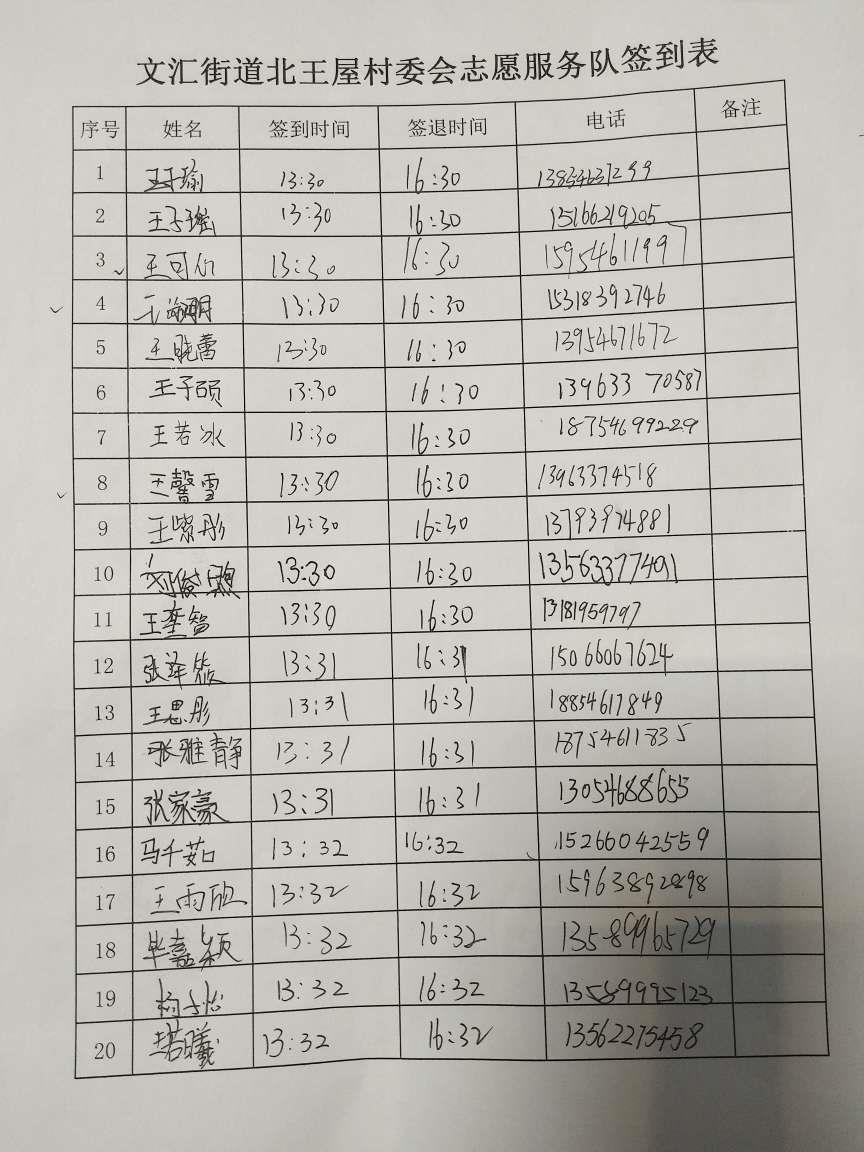 文汇街道北王屋村委会志愿服务队签到表
序号 姓名 签到时间 签退时间 电话 备注
1 13:30 16:30 13854637299
2 王子瑶 13:30 16:30 15166219205
3 王可 13:30 16:30 15954611997
4 13:30 16:30 15318392746
5 王晓蕾 13:30 16:30 13954671672
6 王子硕 13:30 16:30 13963370587
7 王若冰 13:30 16:30 18754699229
8 王馨雪 13:30 16:30 13963374518
9 王紫彤 13:30 16:30 13793974881
10 刘俊 13:30 16:30 13563377491
11 王奎智 13:30 16:30 13181959797
12 张泽筱 13:31 16:31 15066067624
13 王思彤 13:31 16:31 18854617849
14 张雅静 13:31 16:31 18754611835
15 张家豪 13:31 16:31 13054688655
16 马千茹 13:32 16:32 15266042559
17 王雨欣 13:32 16:32 15963892898
18 毕嘉颖 13:32 16:32 13589965729
19 杨子怡 13:32 16:32 13589995123
20 王若曦 13:32 16:32 13562275458